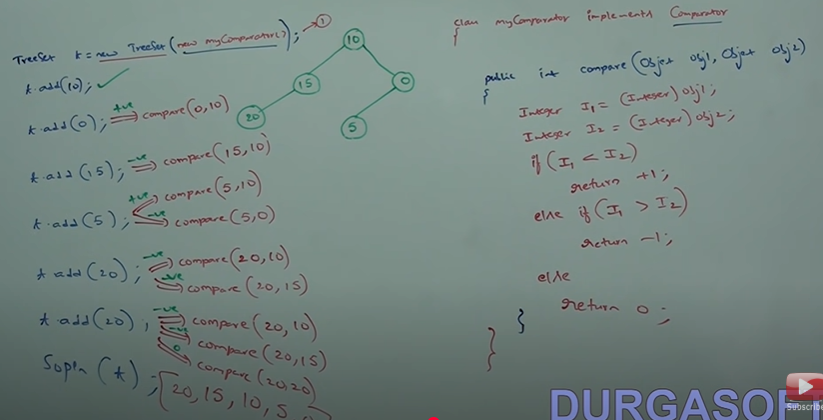 TreeSet t = new TreeSet(new myComparator()); → 1
t.add(10); ✓
t.add(0); +ve ⇒ compare(0,10)
t.add(15); -ve ⇒ compare(15,10)
t.add(5); +ve ⇒ compare(5,10)
-ve ⇒ compare(5,0)
t.add(20); -ve ⇒ compare(20,10)
-ve ⇒ compare(20,15)
t.add(20); -ve ⇒ compare(20,10)
-ve ⇒ compare(20,15)
0 ⇒ compare(20,20)
Sopln(t);
[20, 15, 10, 5,
10
15
0
20
5
class myComparator implements Comparator
{
public int compare(Object obj1, Object obj2)
{
Integer I1 = (Integer)obj1;
Integer I2 = (Integer)obj2;
if(I1 < I2)
return +1;
else if(I1 > I2)
return -1;
else
return 0;
}
}
Subscribe
DURGASOFT